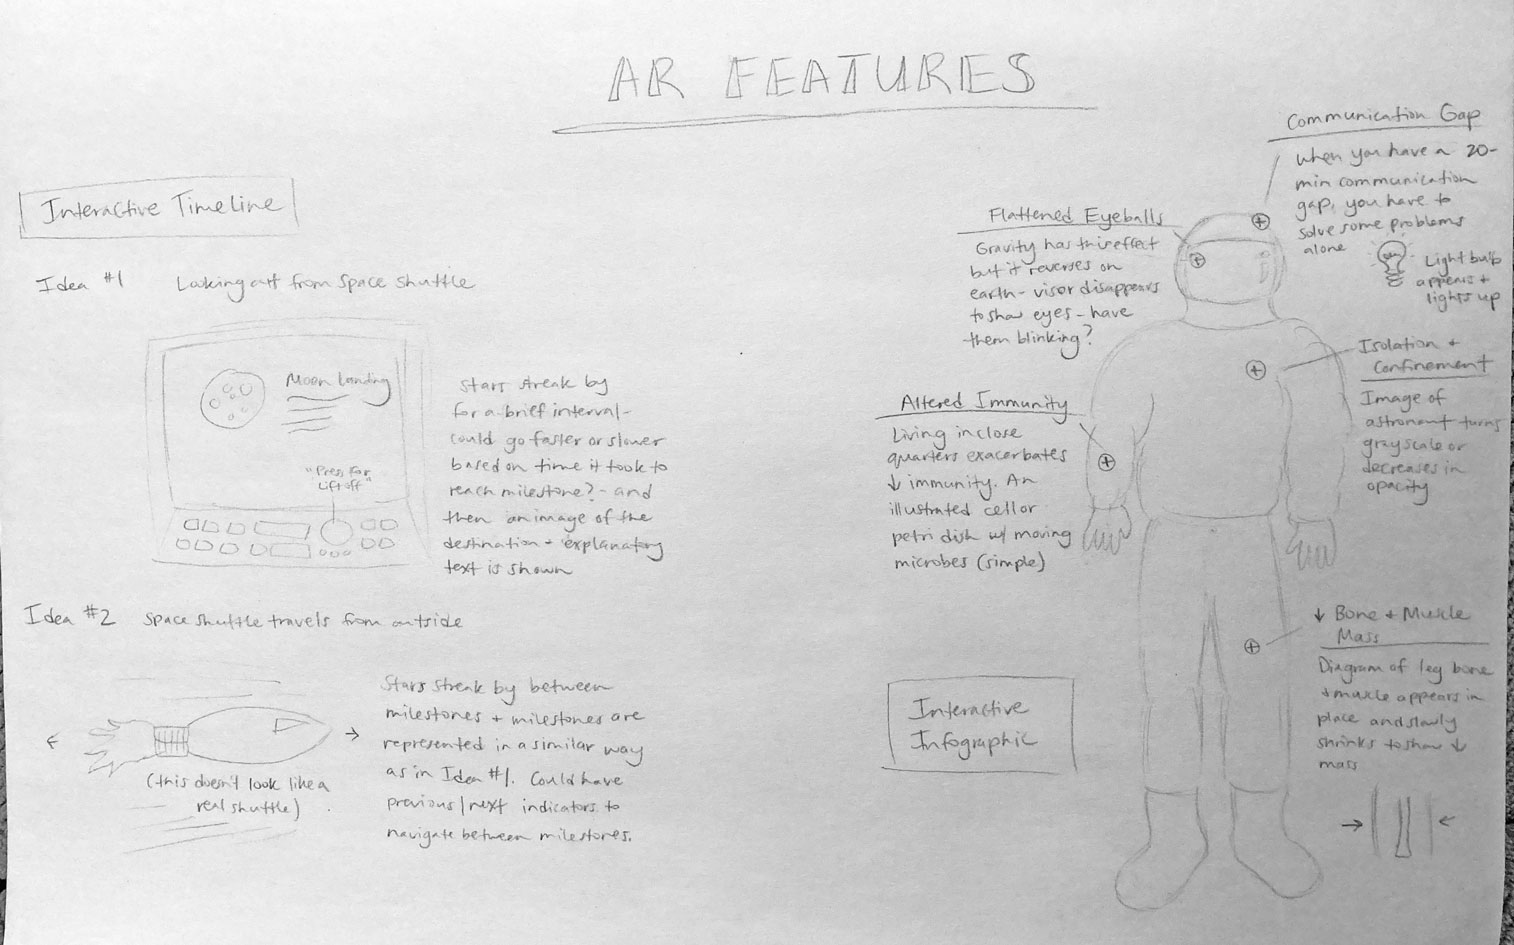 AR FEATURES
Interactive Timeline
Idea #1 Looking out from space shuttle
Moon Landing
"Press for
Liftoff"
Stars streak by
for a brief interval -
could go faster or slower
based on time it took to
reach milestone? - and
then an image of the
destination + explanatory
text is shown
Idea #2 Space shuttle travels from outside
(this doesn't look like a
real shuttle)
Stars streak by between
milestones + milestones are
represented in a similar way
as in Idea #1. Could have
previous/next indicators to
navigate between milestones.
Communication Gap
when you have a 20-
min communication
gap, you have to
solve some problems
alone
Light bulb
appears +
lights up
Flattened Eyeballs
Gravity has this effect
but it reverses on
earth - visor disappears
to show eyes - have
them blinking?
Isolation +
Confinement
Image of
astronaut turns
grayscale or
decreases in
opacity
Altered Immunity
Living in close
quarters exacerbates
↓ immunity. An
illustrated cell or
petri dish w/ moving
microbes (simple)
↓ Bone + Muscle
Mass
Diagram of leg bone
+ muscle appears in
place and slowly
shrinks to show ↓
mass
Interactive
Infographic